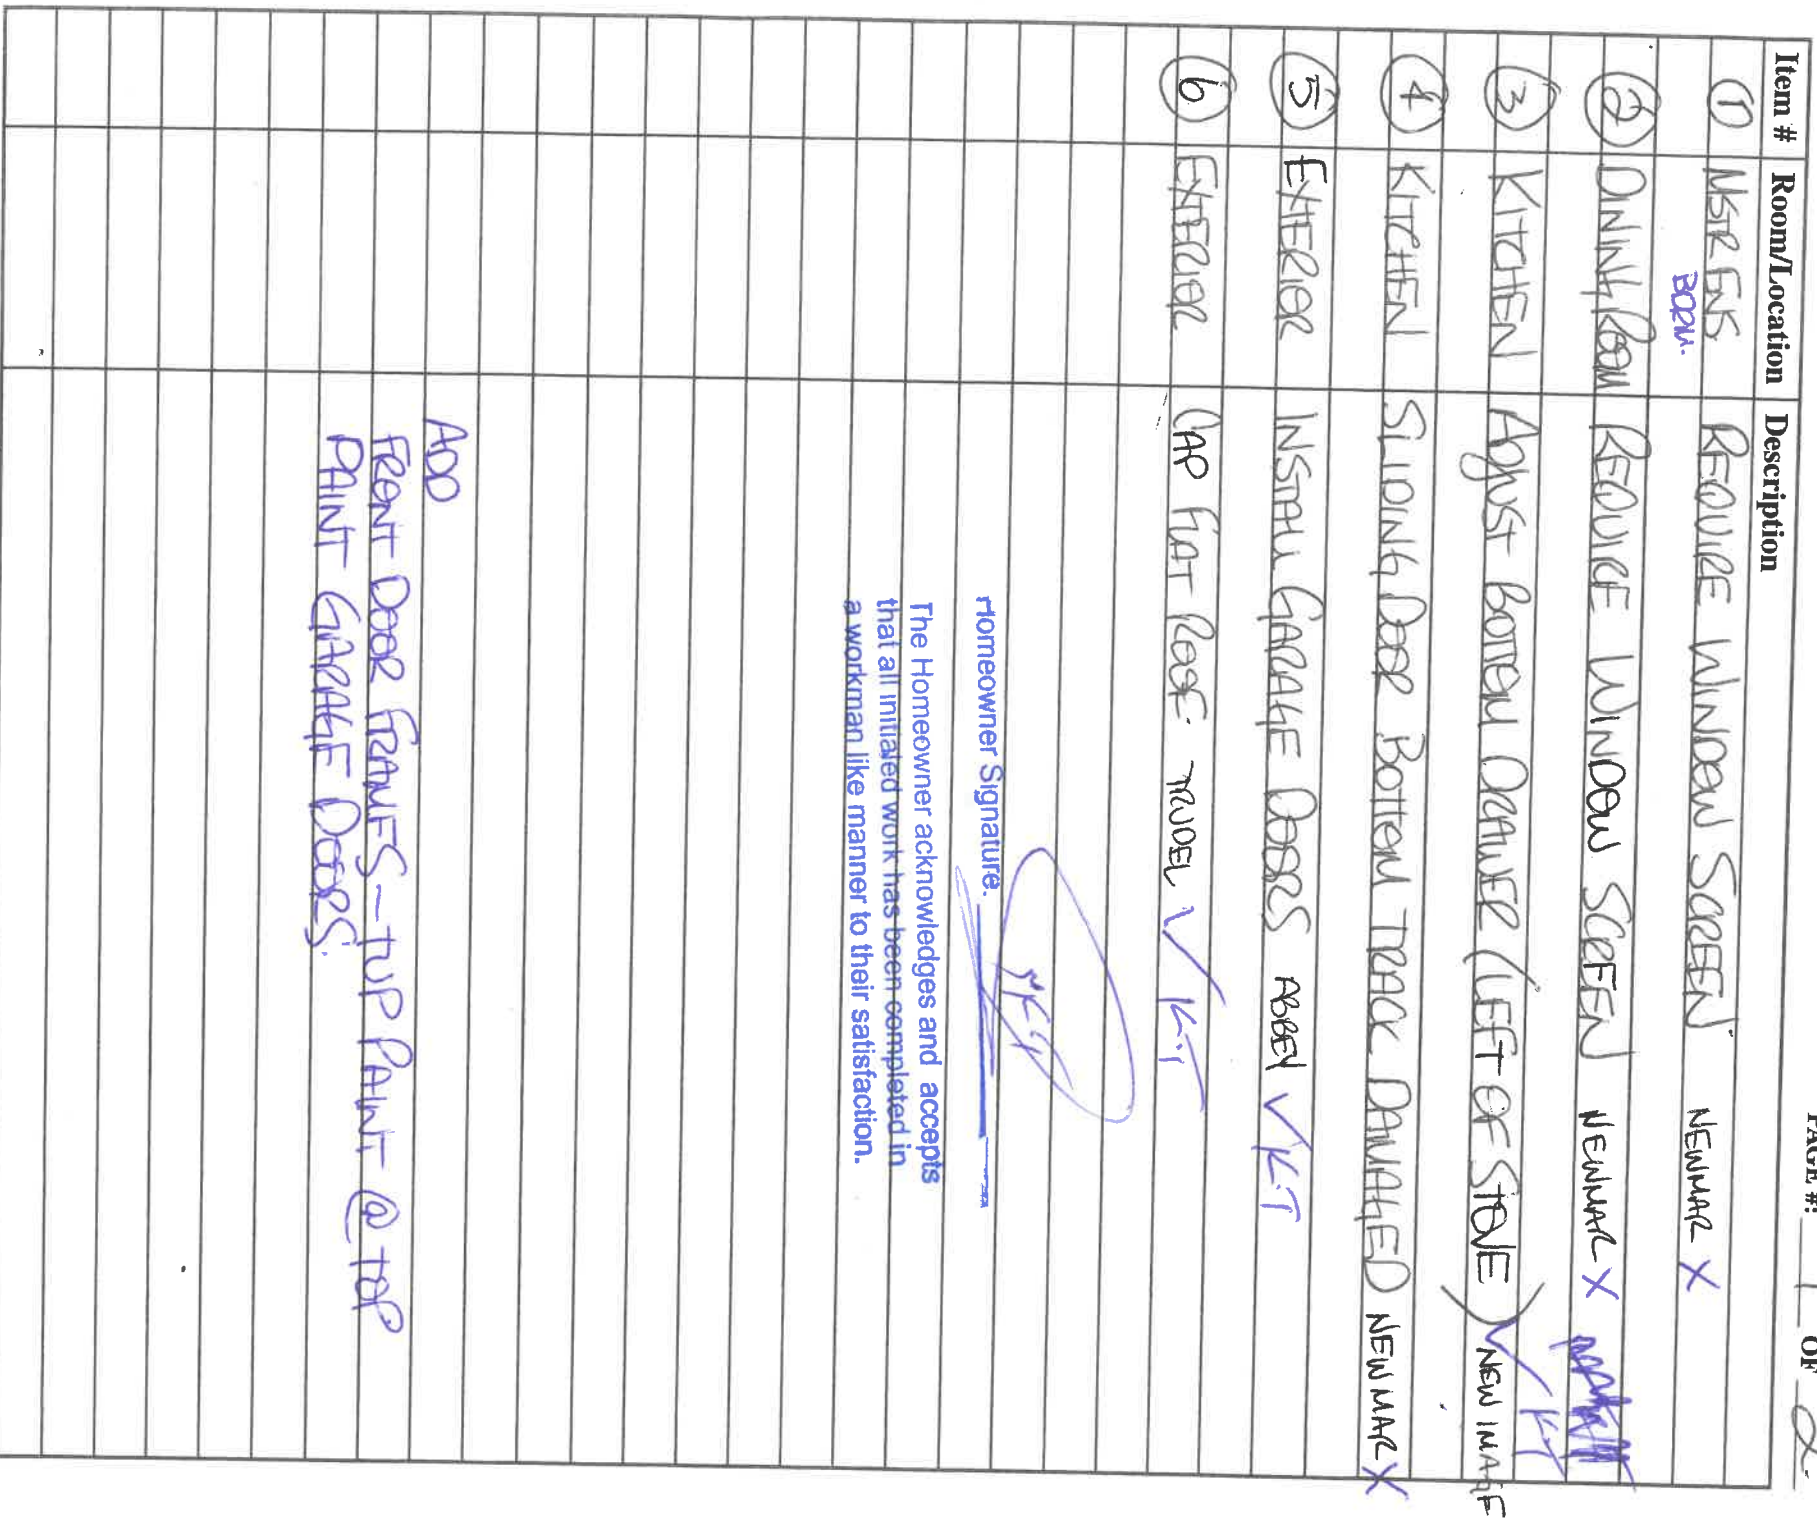 PAGE #: 1 OF 2
Item # Room/Location Description
1 MSTR ENS REQUIRE WINDOW SCREEN NEWMAR X
BDRM.
2 DINING ROOM REQUIRE WINDOW SCREEN NEWMAR X
3 KITCHEN ADJUST BOTTOM DRAWER (LEFT OF STOVE) ✓ NEW IMAGE K.T
4 KITCHEN SLIDING DOOR BOTTOM TRACK DAMAGED NEWMAR X
5 EXTERIOR INSTALL GARAGE DOORS ABBEY ✓ K.T
6 EXTERIOR CAP FLAT ROOF. TRUDEL ✓ K.T
Homeowner Signature.
The Homeowner acknowledges and accepts
that all initialed work has been completed in
a workman like manner to their satisfaction.
ADD
FRONT DOOR FRAMES - T'UP PAINT @ TOP
PAINT GARAGE DOORS.